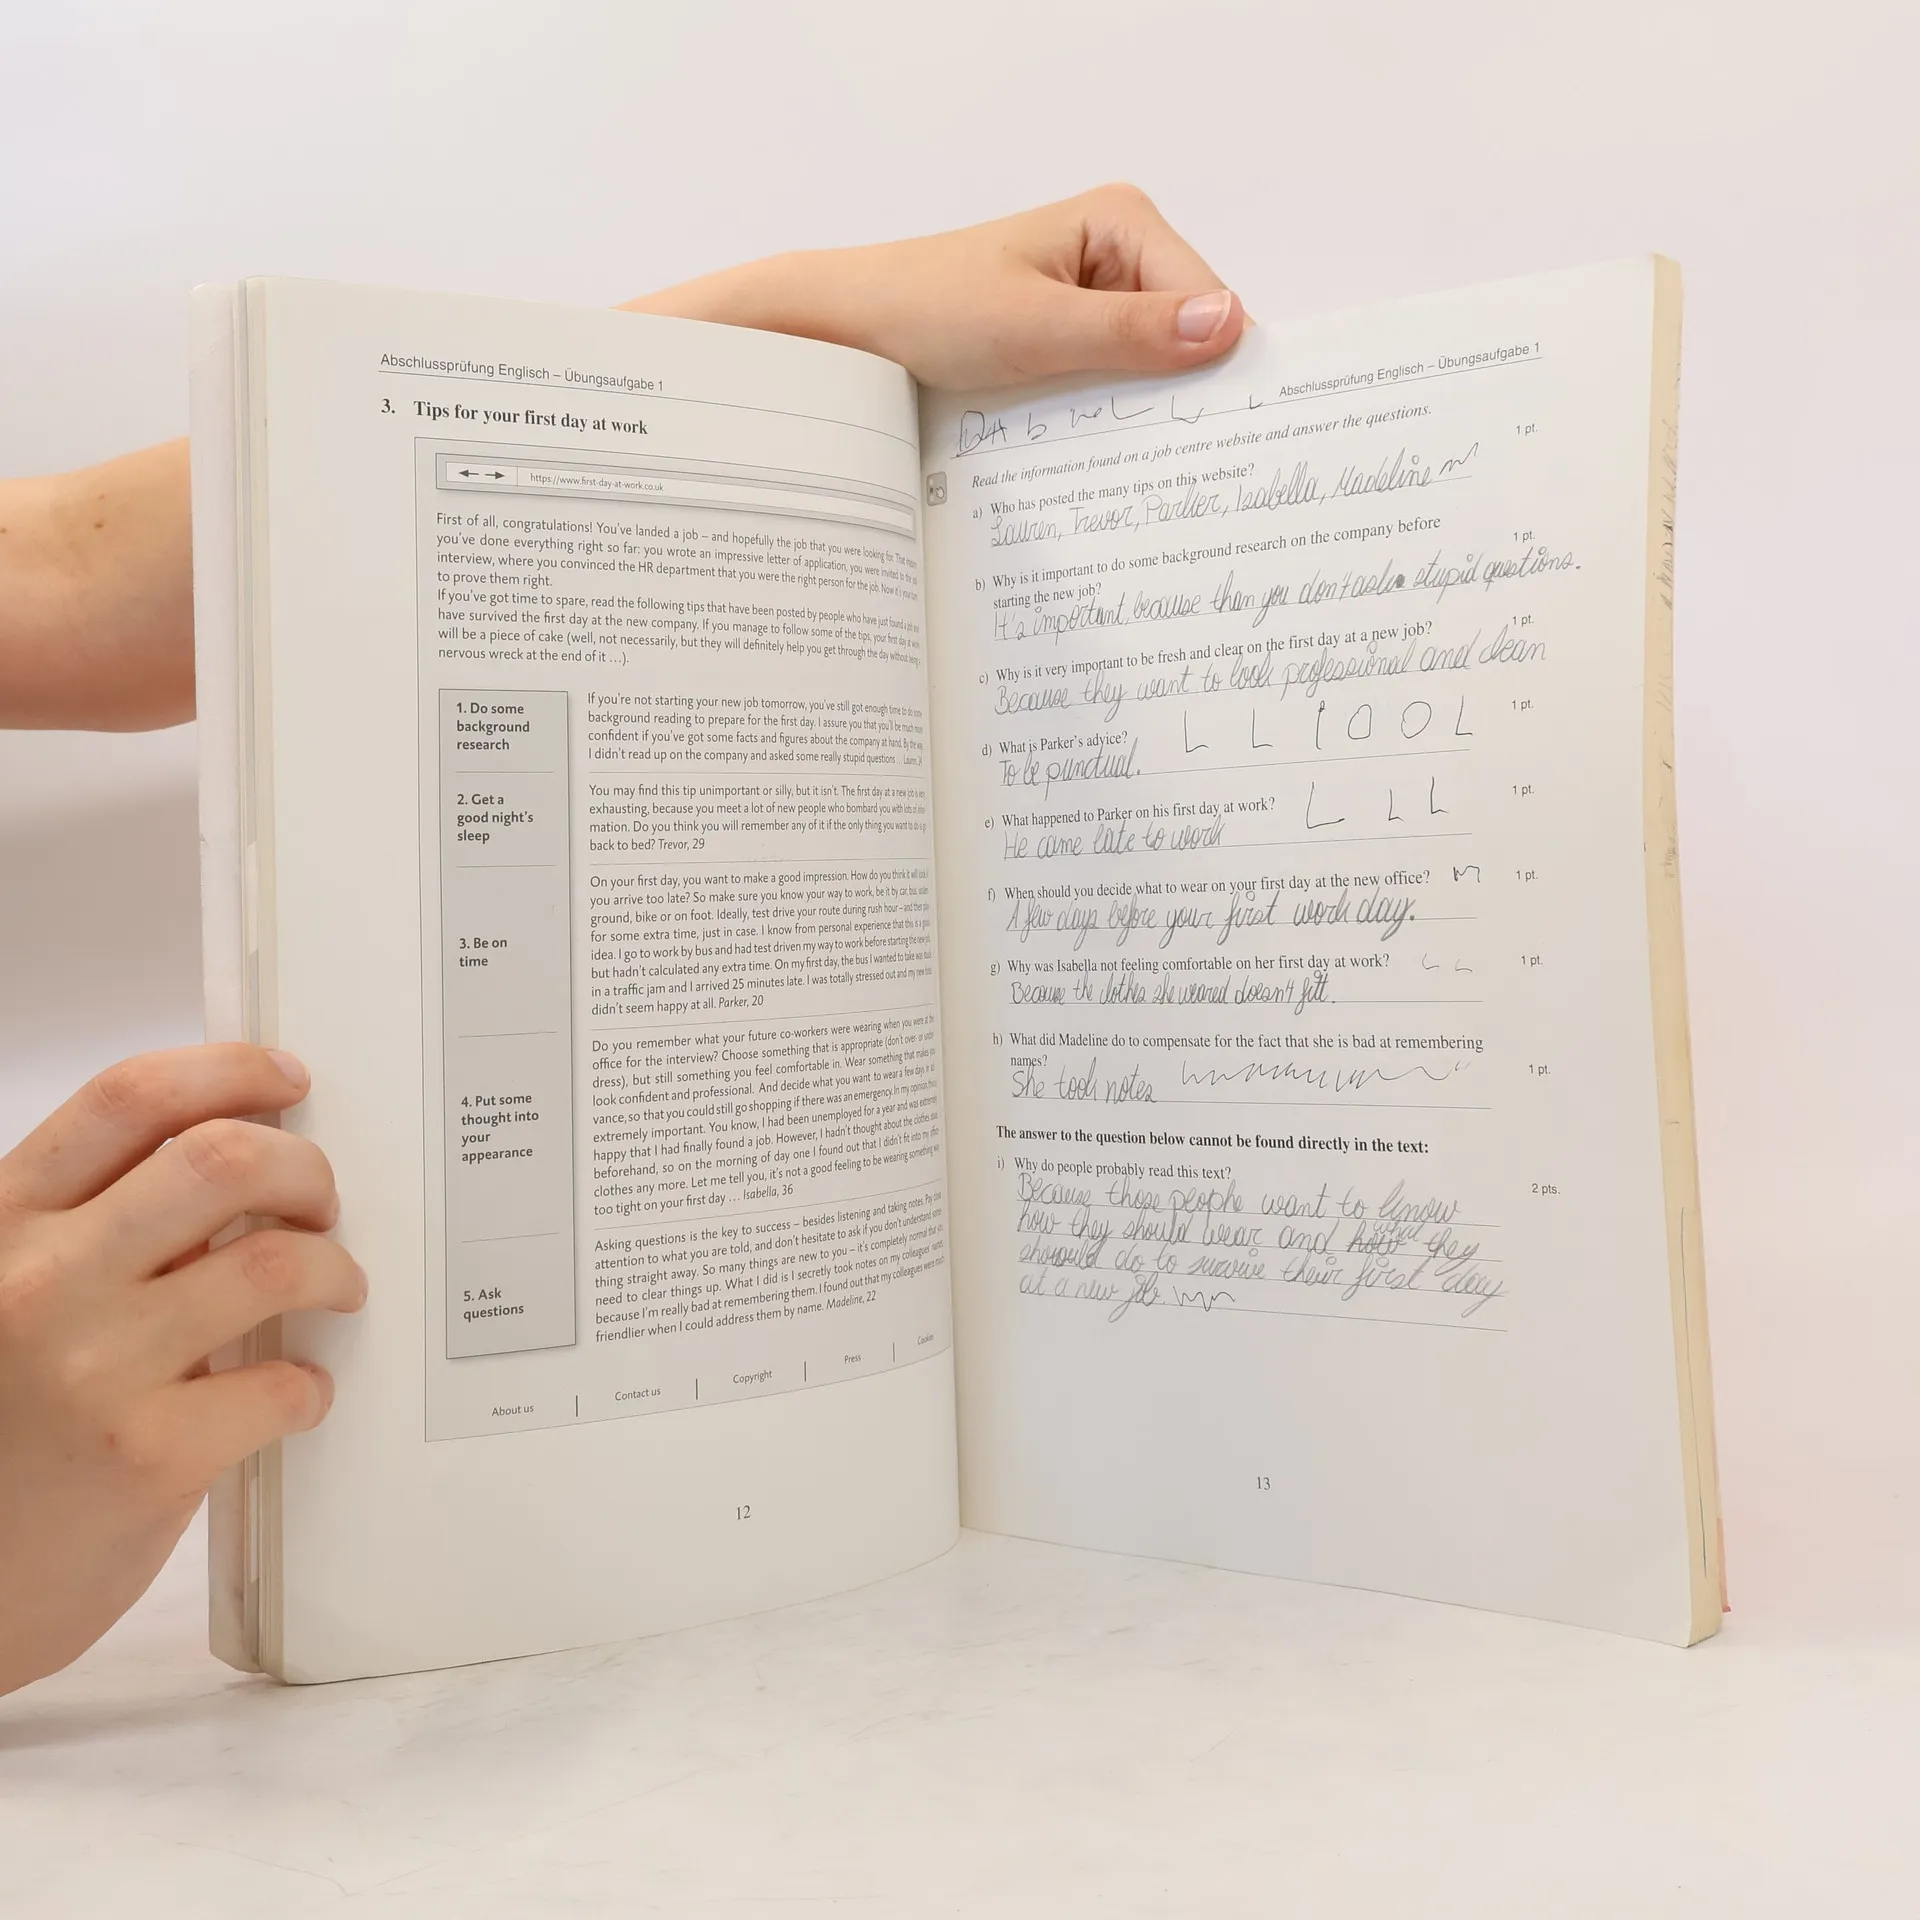 Abschlussprüfung Englisch – Übungsaufgabe 1
3. Tips for your first day at work
https://www.first-day-at-work.co.uk
First of all, congratulations! You've landed a job – and hopefully the job that you were looking for. That means
you've done everything right so far: you wrote an impressive letter of application, you were invited to the
interview, where you convinced the HR department that you were the right person for the job. Now it's your turn
to prove them right.
If you've got time to spare, read the following tips that have been posted by people who have just found a job and
have survived the first day at the new company. If you manage to follow some of the tips, your first day at work
will be a piece of cake (well, not necessarily, but they will definitely help you get through the day without being a
nervous wreck at the end of it ...).
1. Do some
background
research
If you're not starting your new job tomorrow, you've still got enough time to do some
background reading to prepare for the first day. I assure you that you'll be much more
confident if you've got some facts and figures about the company at hand. By the way,
I didn't read up on the company and asked some really stupid questions ... Lauren,
2. Get a
good night's
sleep
You may find this tip unimportant or silly, but it isn't. The first day at a new job is very
exhausting, because you meet a lot of new people who bombard you with lots of infor-
mation. Do you think you will remember any of it if the only thing you want to do is go
back to bed? Trevor, 29
3. Be on
time
On your first day, you want to make a good impression. How do you think it will look if
you arrive too late? So make sure you know your way to work, be it by car, bus, under-
ground, bike or on foot. Ideally, test drive your route during rush hour – and then plan
for some extra time, just in case. I know from personal experience that this is a good
idea. I go to work by bus and had test driven my way to work before starting the new job,
but hadn't calculated any extra time. On my first day, the bus I wanted to take was stuck
in a traffic jam and I arrived 25 minutes late. I was totally stressed out and my new boss
didn't seem happy at all. Parker, 20
4. Put some
thought into
your
appearance
Do you remember what your future co-workers were wearing when you were at the
office for the interview? Choose something that is appropriate (don't over- or under-
dress), but still something you feel comfortable in. Wear something that makes you
look confident and professional. And decide what you want to wear a few days in ad-
vance, so that you could still go shopping if there was an emergency. In my opinion, this is
extremely important. You know, I had been unemployed for a year and was extremely
happy that I had finally found a job. However, I hadn't thought about the clothes issue
beforehand, so on the morning of day one I found out that I didn't fit into my office
clothes any more. Let me tell you, it's not a good feeling to be wearing something way
too tight on your first day ... Isabella, 36
5. Ask
questions
Asking questions is the key to success – besides listening and taking notes. Pay close
attention to what you are told, and don't hesitate to ask if you don't understand some-
thing straight away. So many things are new to you – it's completely normal that you
need to clear things up. What I did is I secretly took notes on my colleagues' names
because I'm really bad at remembering them. I found out that my colleagues were much
friendlier when I could address them by name. Madeline, 22
About us | Contact us | Copyright | Press | Cookies
12
Abschlussprüfung Englisch – Übungsaufgabe 1
Read the information found on a job centre website and answer the questions.
a) Who has posted the many tips on this website? 1 pt.
Lauren, Trevor, Parker, Isabella, Madeline
b) Why is it important to do some background research on the company before
starting the new job? 1 pt.
It's important, because than you don't ask stupid questions.
c) Why is it very important to be fresh and clear on the first day at a new job? 1 pt.
Because they want to look professional and clean
d) What is Parker's advice? 1 pt.
To be punctual.
e) What happened to Parker on his first day at work? 1 pt.
He came late to work
f) When should you decide what to wear on your first day at the new office? 1 pt.
A few days before your first work day.
g) Why was Isabella not feeling comfortable on her first day at work? 1 pt.
Because the clothes she weared doesn't fitt.
h) What did Madeline do to compensate for the fact that she is bad at remembering
names? 1 pt.
She took notes
The answer to the question below cannot be found directly in the text:
i) Why do people probably read this text? 2 pts.
Because those peophe want to know
how they should wear and what they
should do to survive their first day
at a new job.
13